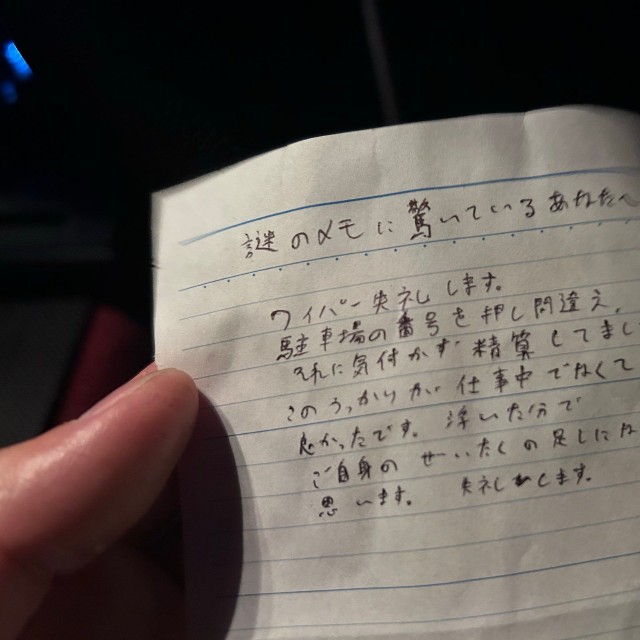 謎のメモに驚いているあなたへ
ワイパー失礼します。
駐車場の番号を押し間違え、
それに気付かず精算してまし
このうっかりが仕事中でなくて
良かったです。浮いた分で
ご自身のぜいたくの足しにな
思います。失礼します。